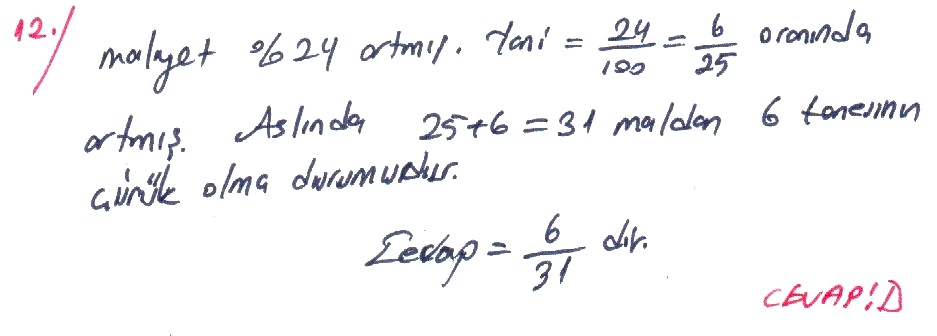 12./ maliyet %24 artmış. Yani = 24/100 = 6/25 oranında
artmış. Aslında 25+6=31 maldan 6 tanesinin
çürük olma durumudur.
Cevap = 6/31 dir.
CEVAP: D